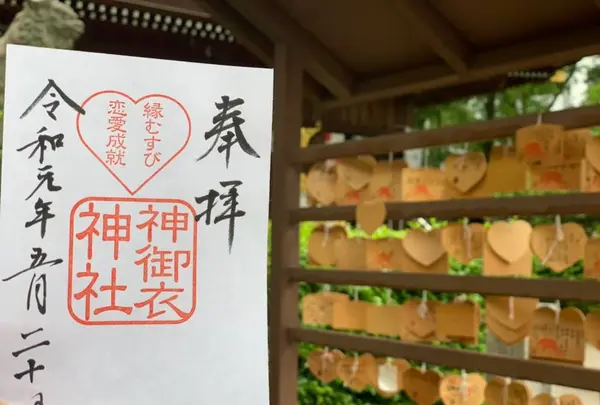 奉拝
縁むすび
恋愛成就
神御衣
神社
令和元年五月二十